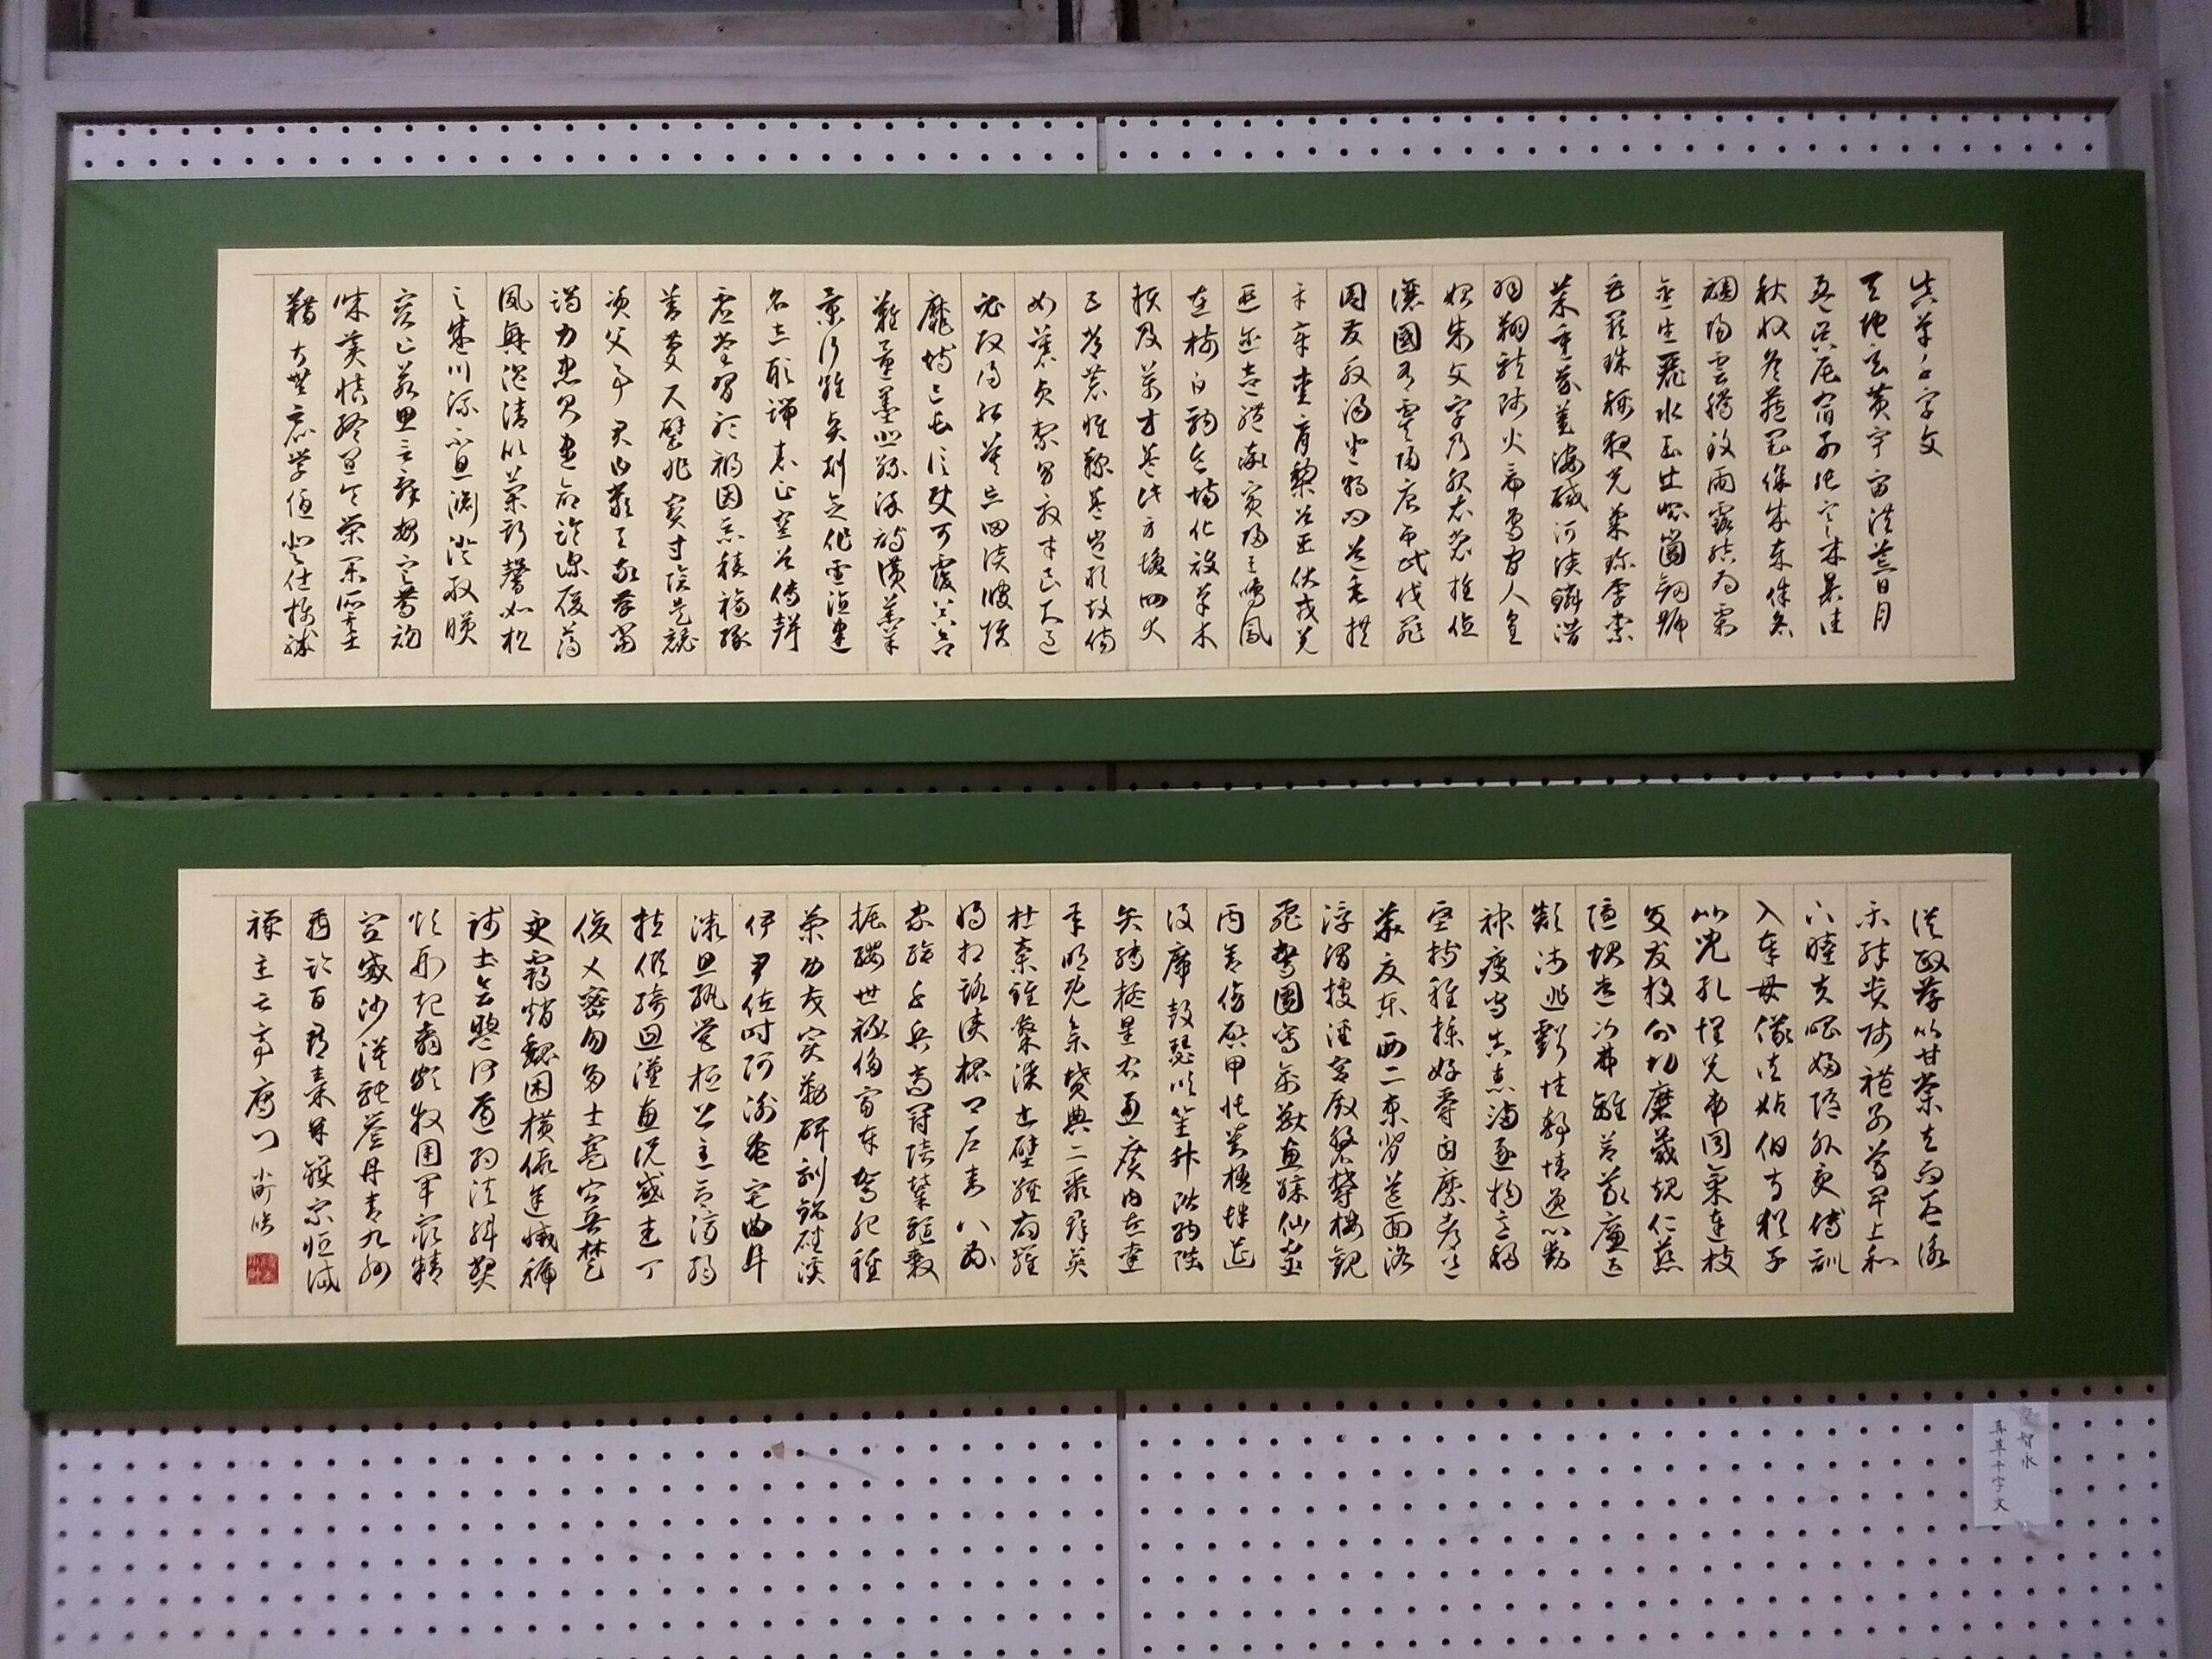 真草千字文
天地玄黃宇宙洪荒日月
盈昃辰宿列張寒來暑往
秋收冬藏閏餘成歲律呂
調陽雲騰致雨露結為霜
金生麗水玉出崑崗劍號
巨闕珠稱夜光菓珍李柰
菜重芥薑海鹹河淡鱗潛
羽翔龍師火帝鳥官人皇
始制文字乃服衣裳推位
讓國有虞陶唐弔民伐罪
周發殷湯坐朝問道垂拱
平章愛育黎首臣伏戎羌
遐邇壹體率賓歸王鳴鳳
在樹白駒食場化被草木
賴及萬方蓋此身髮四大
五常恭惟鞠養豈敢毀傷
女慕貞絜男效才良知過
必改得能莫忘罔談彼短
靡恃己長信使可覆器欲
難量墨悲絲染詩讚羔羊
景行維賢剋念作聖德建
名立形端表正空谷傳聲
虛堂習聽禍因惡積福緣
善慶尺璧非寶寸陰是競
資父事君曰嚴與敬孝當
竭力忠則盡命臨深履薄
夙興溫清似蘭斯馨如松
之盛川流不息淵澄取暎
容止若思言辭安定篤初
誠美慎終宜令榮業所基
籍甚無竟學優登仕攝職
從政存以甘棠去而益詠
樂殊貴賤禮別尊卑上和
下睦夫唱婦隨外受傅訓
入奉母儀諸姑伯叔猶子
比兒孔懷兄弟同氣連枝
交友投分切磨箴規仁慈
隱惻造次弗離節義廉退
顛沛匪虧性靜情逸心動
神疲守真志滿逐物意移
堅持雅操好爵自縻都邑
華夏東西二京背芒面洛
浮渭據涇宮殿盤鬱樓觀
飛驚圖寫禽獸畫綵仙靈
丙舍傍啟甲帳對楹肆筵
設席鼓瑟吹笙升階納陛
弁轉疑星右通廣內左達
承明既集墳典亦聚群英
杜稾鍾隸漆書壁經府羅
將相路俠槐卿戶封八縣
家給千兵高冠陪輦驅轂
振纓世祿侈富車駕肥輕
策功茂實勒碑刻銘磻溪
伊尹佐時阿衡奄宅曲阜
微旦孰營桓公匡合濟弱
扶傾綺迴漢惠說感武丁
俊乂密勿多士寔寧晉楚
更霸趙魏困橫假途滅虢
踐土會盟何遵約法韓弊
煩刑起翦頗牧用軍最精
宣威沙漠馳譽丹青九州
禹跡百郡秦并嶽宗恒岱
禪主云亭雁門
智永
真草千字文